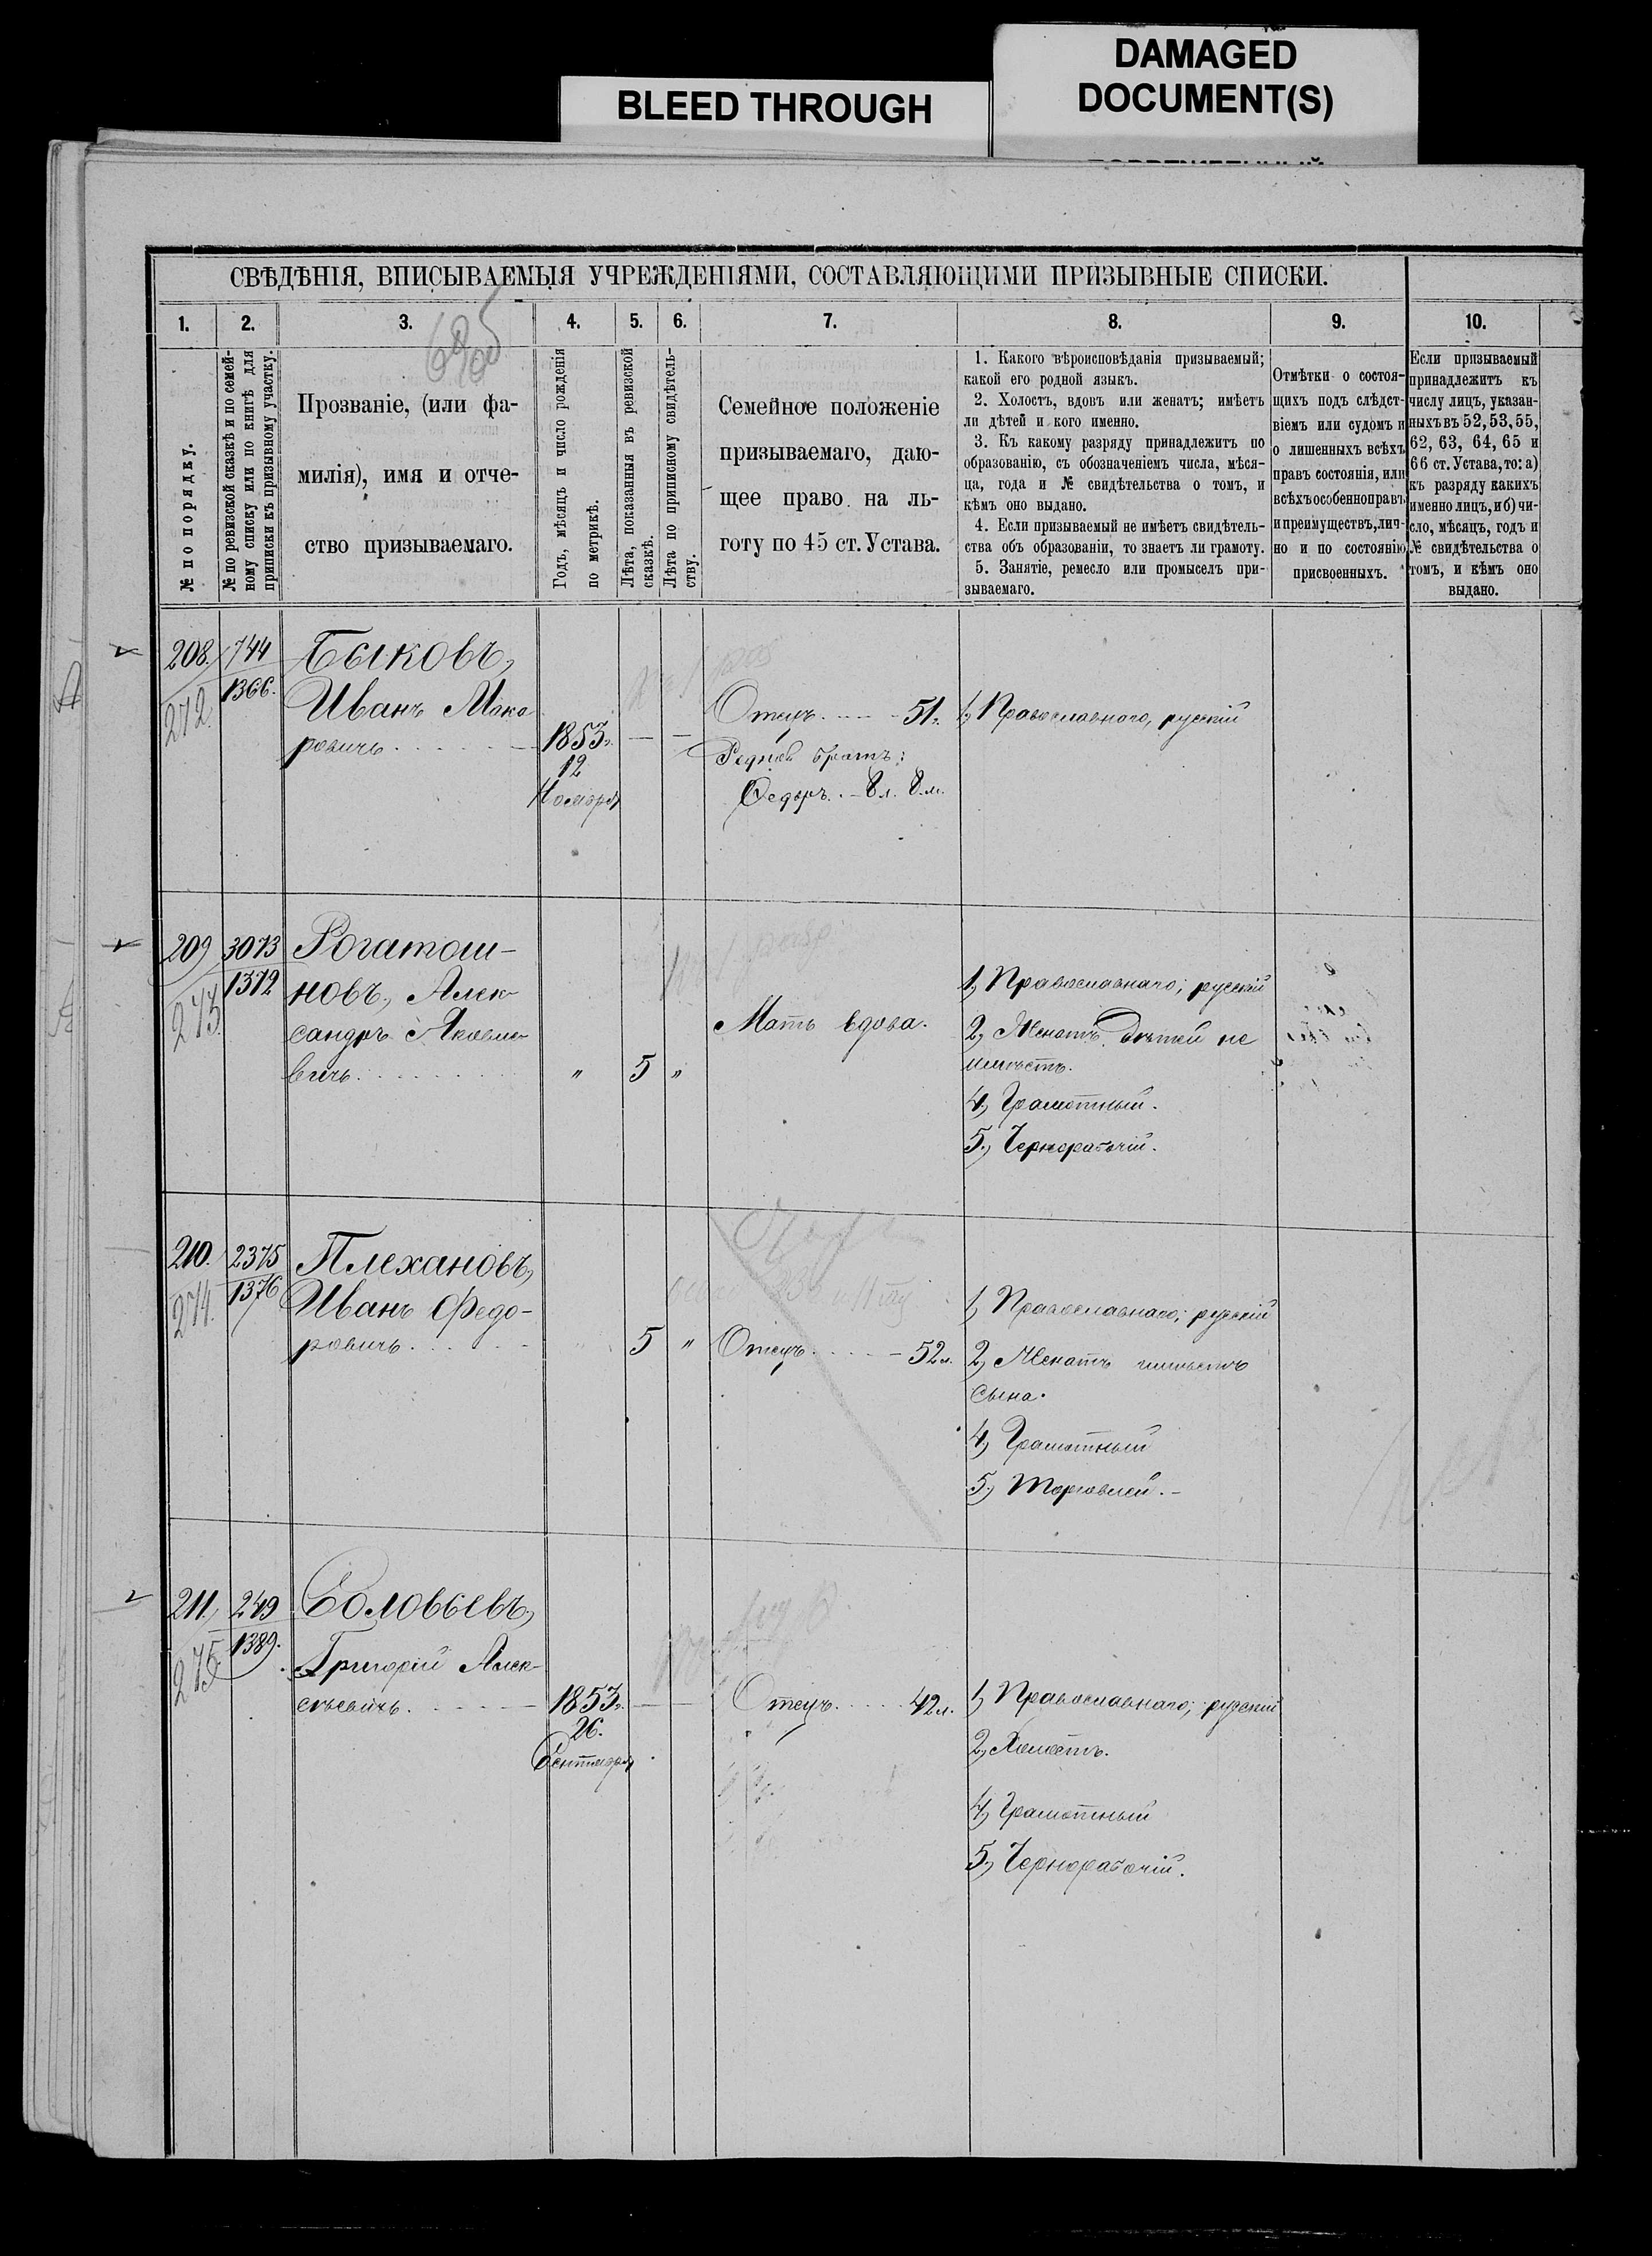 DAMAGED
DOCUMENT(S)
BLEED THROUGH
СВѢДѢНІЯ, ВПИСЫВАЕМЫЯ УЧРЕЖДЕНІЯМИ, СОСТАВЛЯЮЩИМИ ПРИЗЫВНЫЕ СПИСКИ.
1.
2.
3.
4.
5.
6.
7.
8.
9.
10.
№ по порядку.
№ по ревизской сказкѣ и по семей-
ному списку или по книгѣ для
приписки къ призывному участку.
Прозваніе, (или фа-
милія), имя и отче-
ство призываемаго.
Годъ, мѣсяцъ и число рожденія
по метрикѣ.
Лѣта, показанныя въ ревизской
сказкѣ.
Лѣта по приписному свидѣтель-
ству.
Семейное положеніе
призываемаго, даю-
щее право на ль-
готу по 45 ст. Устава.
1. Какого вѣроисповѣданія призываемый;
какой его родной языкъ.
2. Холостъ, вдовъ или женатъ; имѣетъ
ли дѣтей и кого именно.
3. Къ какому разряду принадлежитъ по
образованію, съ обозначеніемъ числа, мѣся-
ца, года и № свидѣтельства о томъ, и
кѣмъ оно выдано.
4. Если призываемый не имѣетъ свидѣтель-
ства объ образованіи, то знаетъ ли грамоту.
5. Занятіе, ремесло или промыселъ при-
зываемаго.
Отмѣтки о состоя-
щихъ подъ слѣдст-
віемъ или судомъ и
о лишенныхъ всѣхъ
правъ состоянія, или
всѣхъ особенно правъ
и преимуществъ, лич-
но и по состоянію
присвоенныхъ.
Если призываемый
принадлежитъ къ
числу лицъ, указан-
ныхъ въ 52, 53, 55,
62, 63, 64, 65 и
66 ст. Устава, то: а)
къ разряду какихъ
именно лицъ, и б) чи-
сло, мѣсяцъ, годъ и
№ свидѣтельства о
томъ, и кѣмъ оно
выдано.
208. 744
1366.
272.
Быковъ,
Иванъ Мака
ровичъ
1853г.
12
Ноября
Отецъ 51г.
Родной братъ:
Ѳедоръ 8 л. 8 м.
1, Православнаго, русскій
209 3073
1372
Рогатош-
новъ, Алек-
сандръ Яковле-
вичъ
" 5 "
Мать вдова.
1, Православнаго; русскій
2, Женатъ, дѣтей не
имѣетъ.
4, Грамотный.
5, Чернорабочій.
210. 2375
1376
274.
Плехановъ,
Иванъ Федо-
ровичъ
5 "
Отецъ 52л.
1, Православнаго; русскій
2, Женатъ имѣетъ
сына.
4, Грамотный
5, Торговлей.
211. 249
1389.
275
Соловьевъ,
Григорій Алек-
сѣевичъ
1853г.
26.
Сентября
Отецъ 42л.
1, Православнаго; русскій
2, Холостъ.
4, Грамотный
5, Чернорабочій.